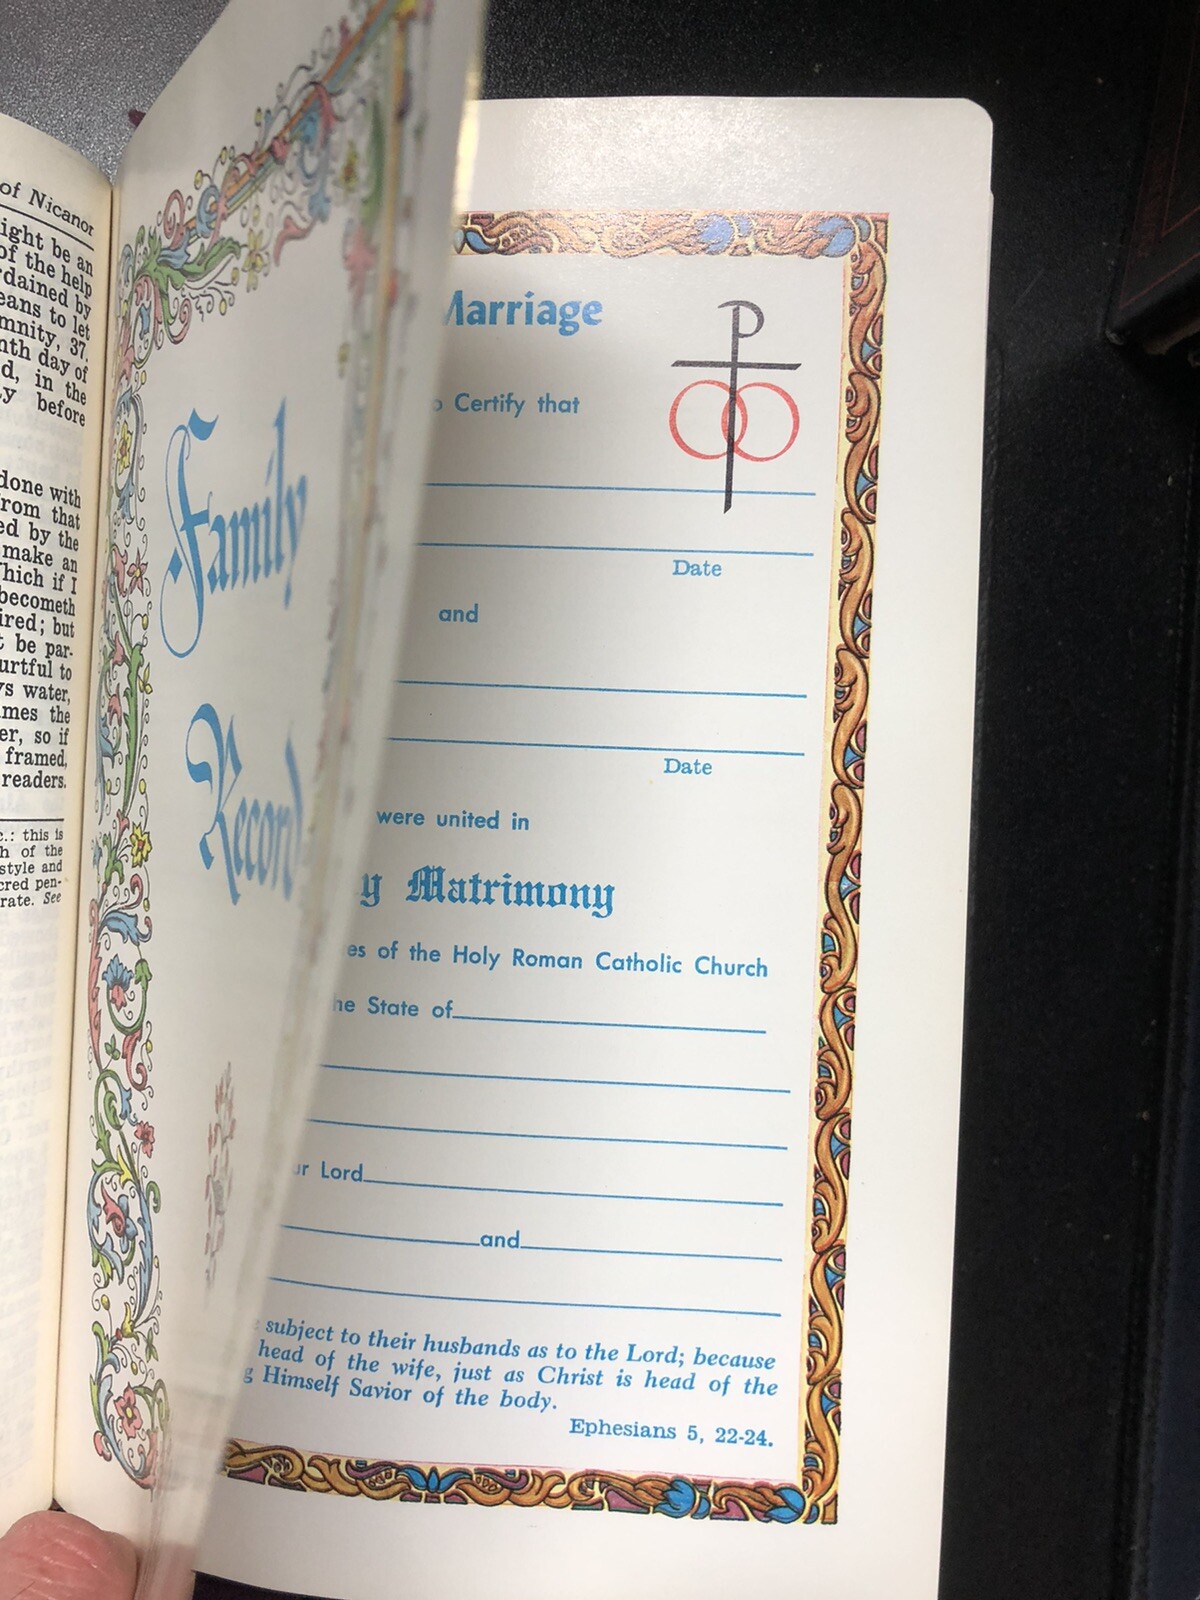 of Nicanor
ight be an
of the help
dained by
eans to let
mnity, 37.
nth day of
d, in the
before
done with
from that
ed by the
make an
hich if I
becometh
ired; but
be par-
urtful to
water,
mes the
er, so if
framed,
readers.
c.: this is
h of the
style and
cred pen-
rate. See
Family
Record
Marriage
Certify that
Date
and
Date
were united in
y Matrimony
es of the Holy Roman Catholic Church
he State of
ur Lord
and
subject to their husbands as to the Lord; because
head of the wife, just as Christ is head of the
g Himself Savior of the body.
Ephesians 5, 22-24.